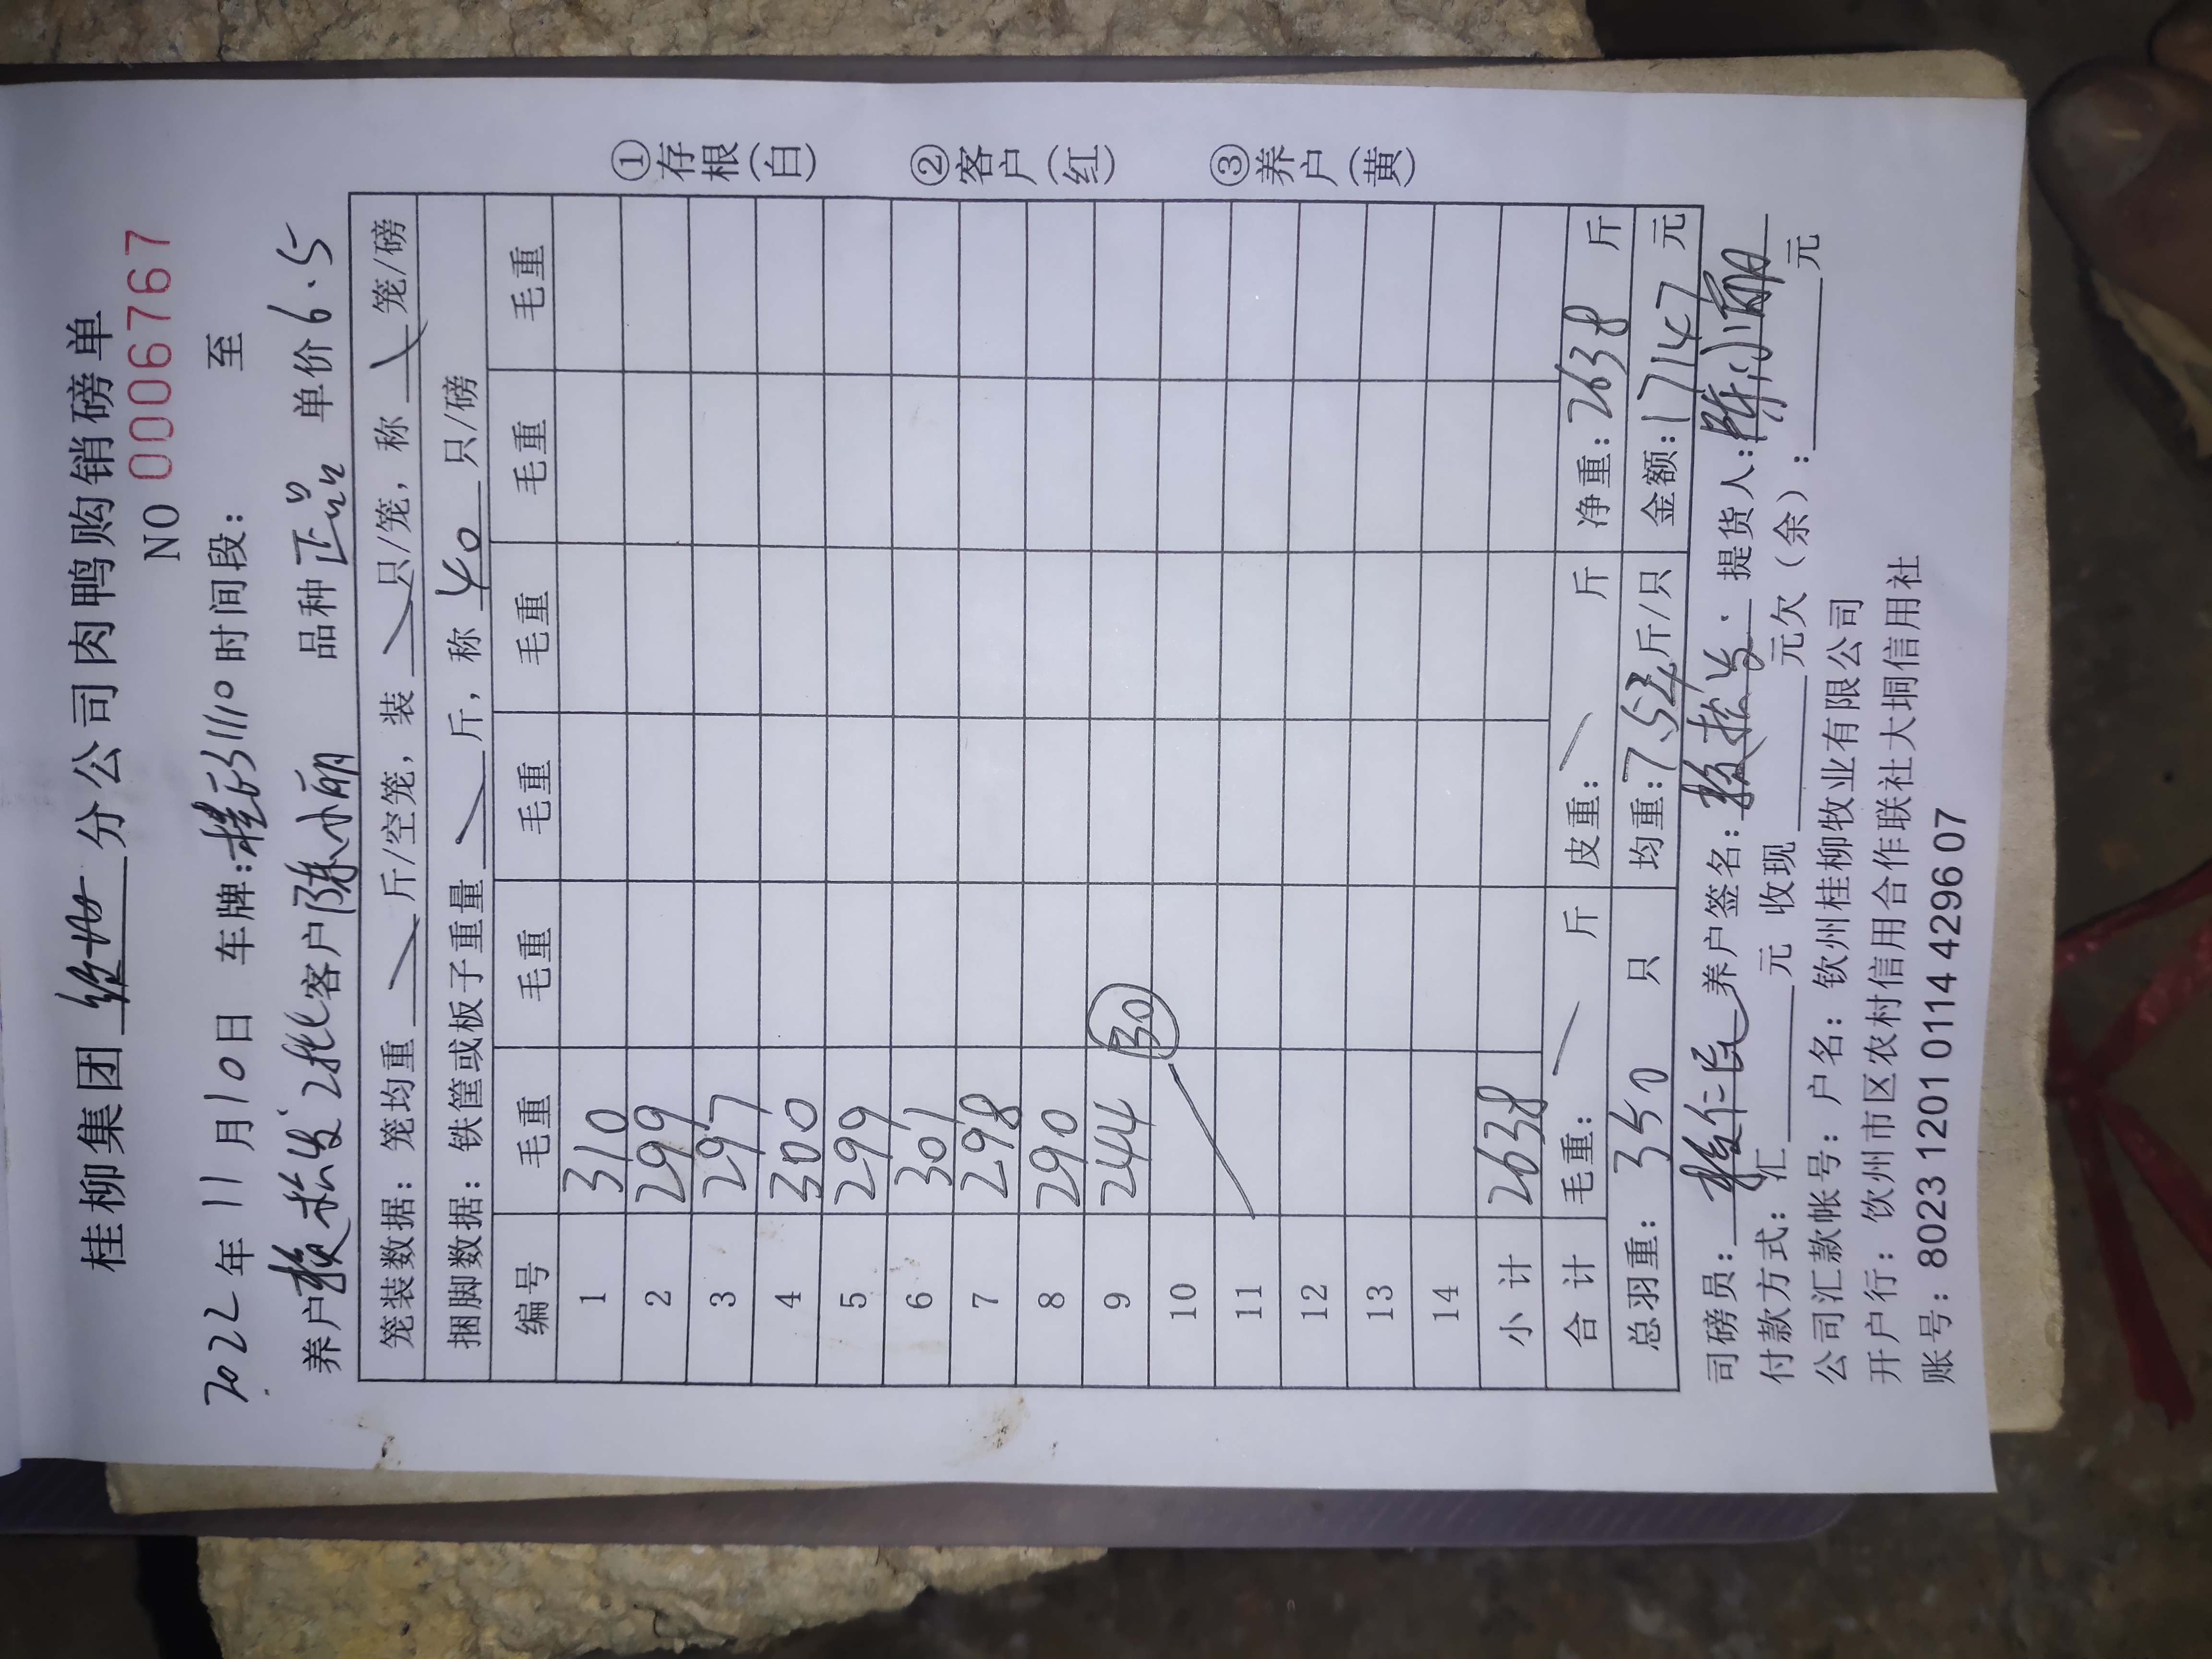 桂柳集团 分公司肉鸭购销磅单
NO 0006767
2022年11月10日 车牌:桂 31110 时间段: 至
养户赖松发 2批客户陈小丽 品种正品 单价6.5
笼装数据:笼均重 斤/空笼,装 只/笼,称 笼/磅
捆脚数据:铁筐或板子重量 斤,称 40 只/磅
编号 毛重 毛重 毛重 毛重 毛重 毛重
1 310
2 299
3 297
4 300
5 299
6 301
7 298
8 290
9 244 30
10
11
12
13
14
小计 2638
合计 毛重: 斤 皮重: 斤 净重:2638 斤
总羽重:350 只 均重:7.54斤/只 金额:17147元
①存根(白) ②客户(红) ③养户(黄)
司磅员: 养户签名:赖松发 提货人:陈小丽
付款方式:汇 元 收现 元欠(余): 元
公司汇款帐号:户名:钦州桂柳牧业有限公司
开户行:钦州市区农村信用合作联社大垌信用社
账号:8023 1201 0114 4296 07